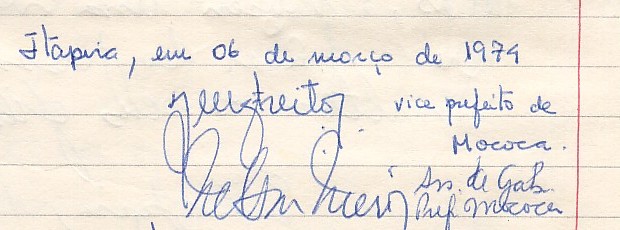 Itapira, em 06 de março de 1974
vice prefeito de
Mococa.
Ass. de Gab.
Pref. Mococa